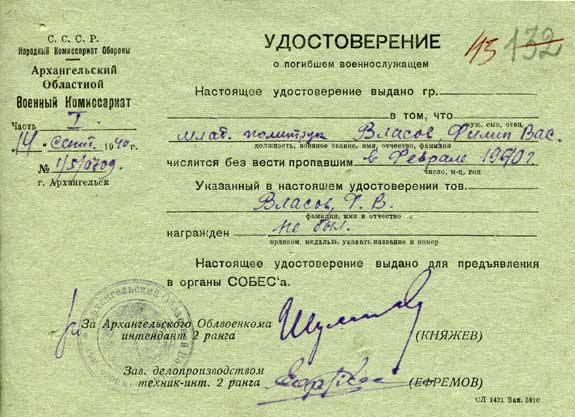 С. С. С. Р.
Народный Комиссариат Обороны
Архангельский
Областной
Военный Комиссариат
Часть I.
"14" сент. 1940 г.
№ 1/5/0709
г. Архангельск
43 132
УДОСТОВЕРЕНИЕ
о погибшем военнослужащем
Настоящее удостоверение выдано гр.
в том, что
муж, сын, отец
млад. политрук Власов, Филип Вас.
должность, военное звание, имя, отчество, фамилия
числится без вести пропавшим в Феврале 1940 г.
число, м-ц, год
Указанный в настоящем удостоверении тов.
Власов, Ф. В.
фамилия, имя и отчество
награжден не был.
орденом, медалью, указать название и номер
Настоящее удостоверение выдано для предъявления
в органы СОБЕС'а.
За Архангельского Облвоенкома
интендант 2 ранга
(КНЯЖЕВ)
Зав. делопроизводством
техник-инт. 2 ранга
(ЕФРЕМОВ)
СЛ 1421 Зак. 5910